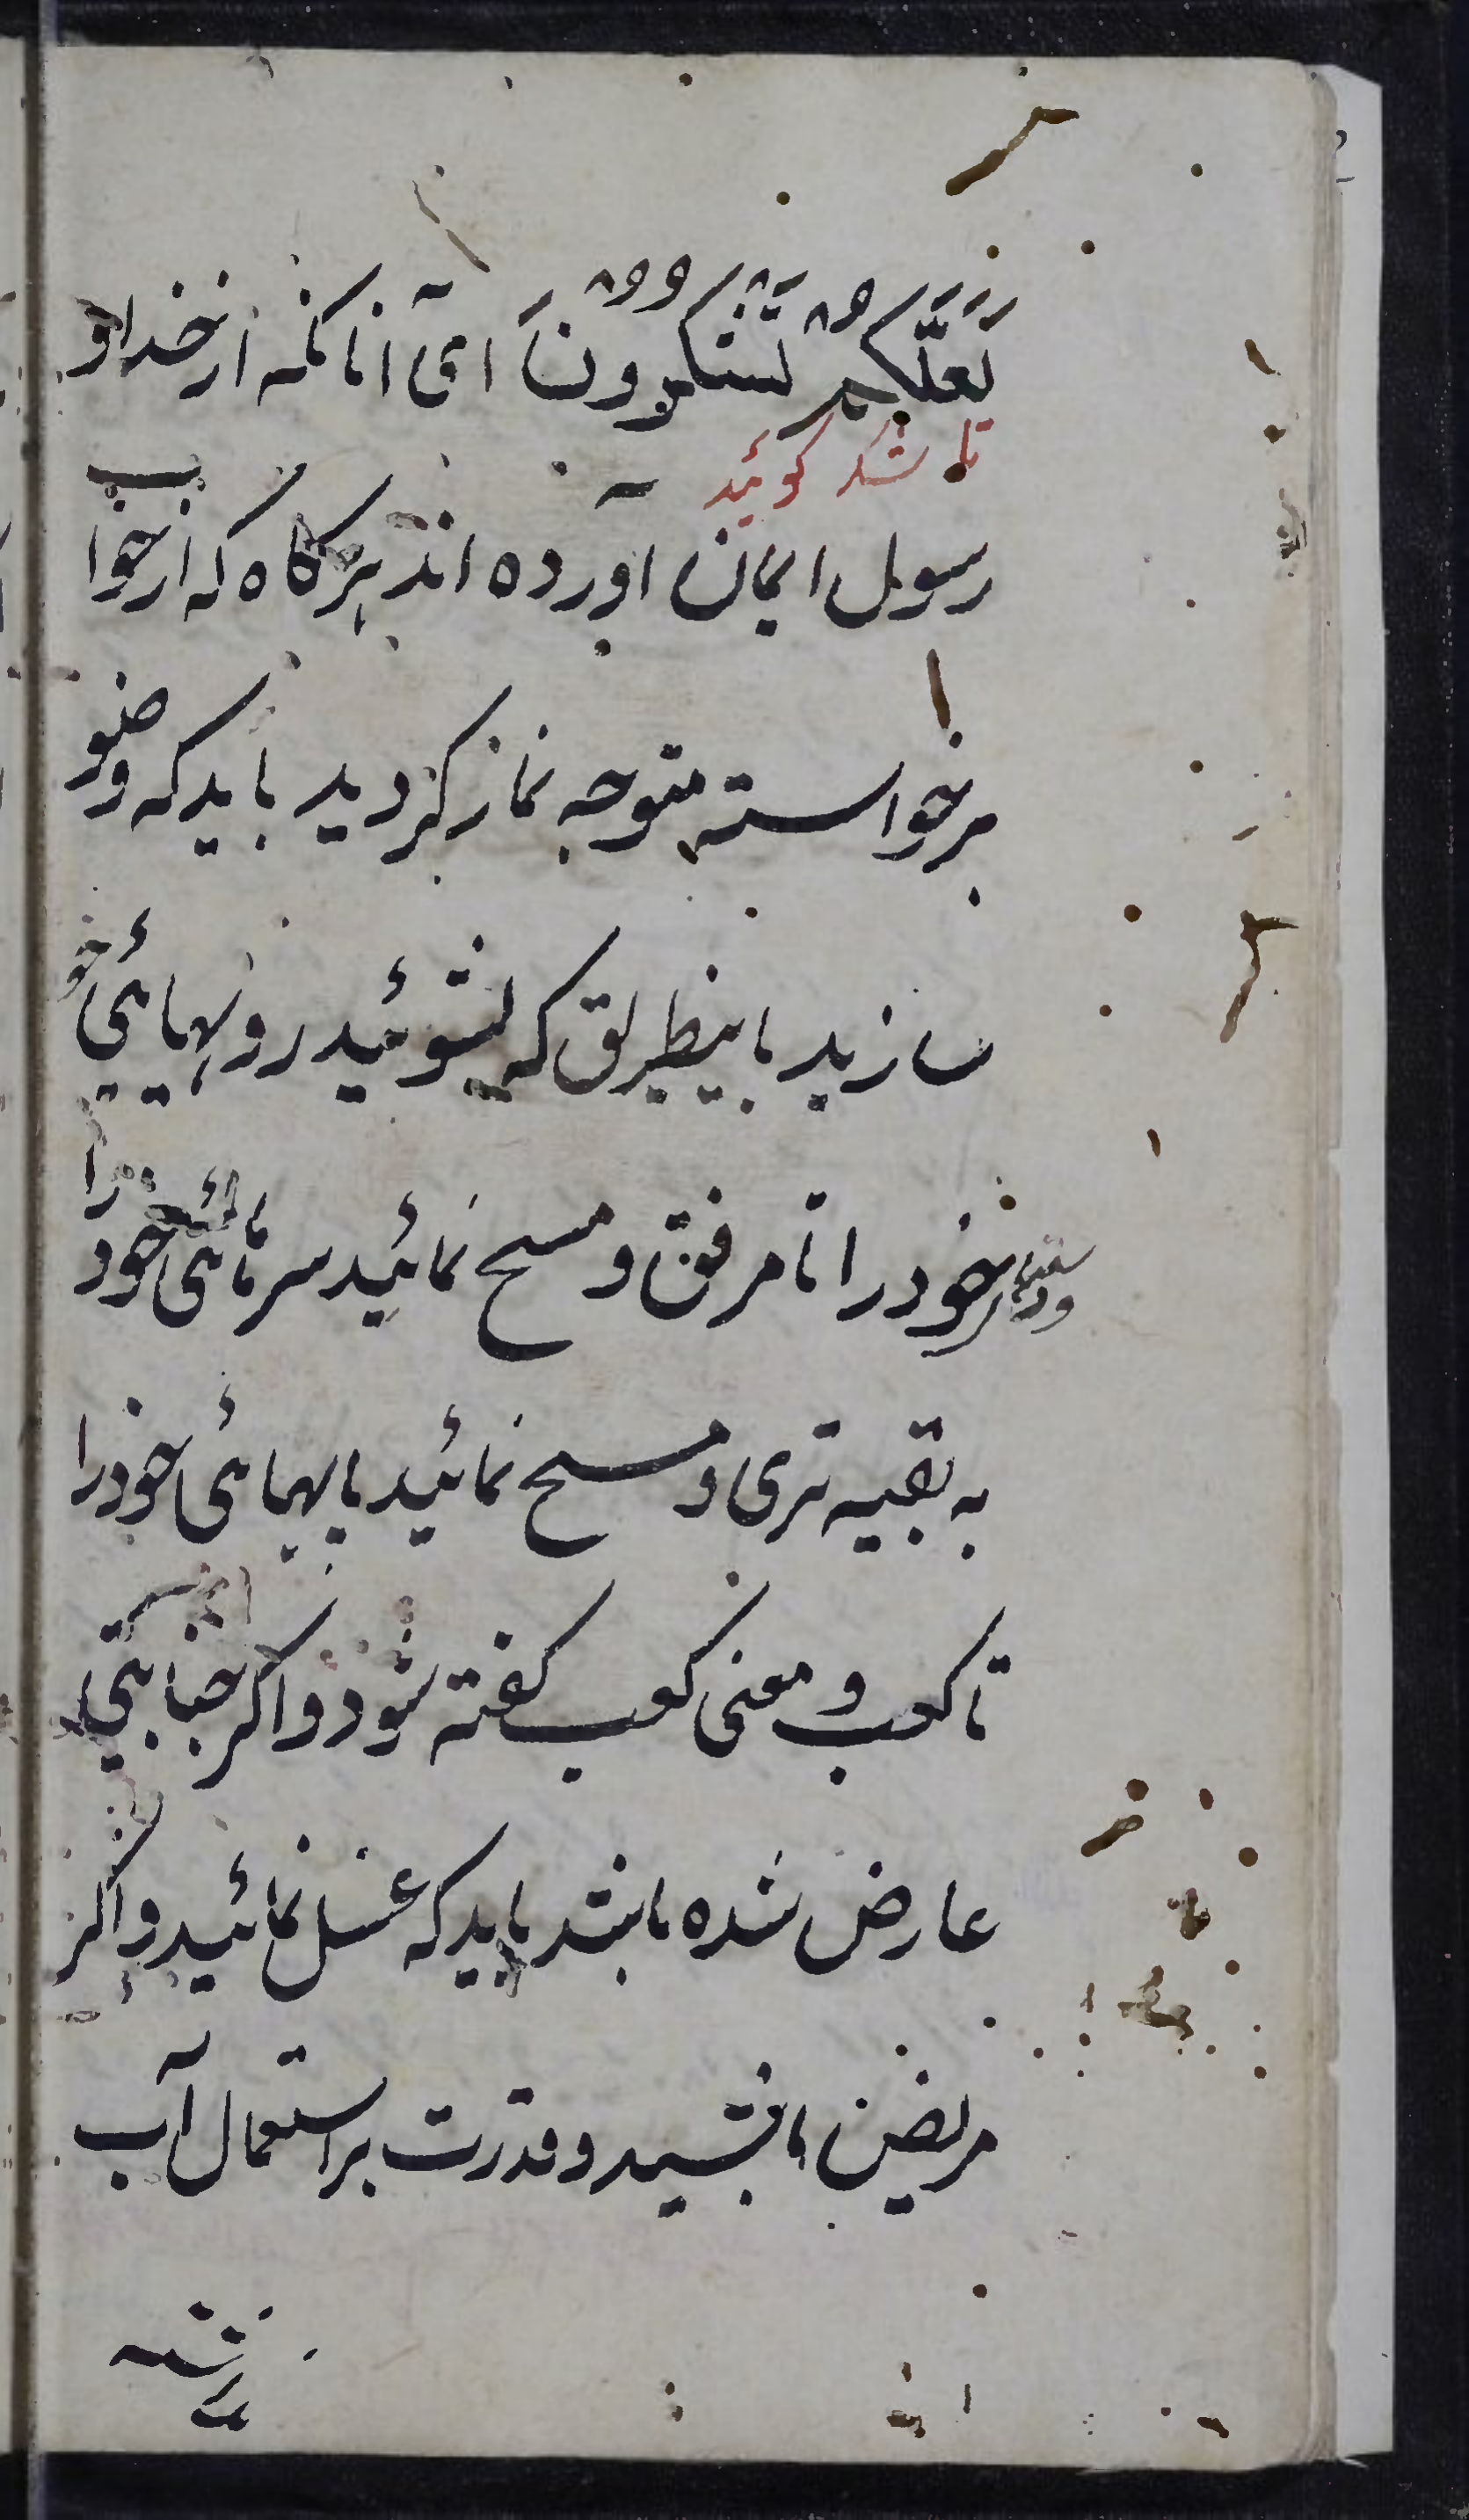 لَعَلَّكُمْ تَشْكُرُونَ ای آنانکه از خدا و
تا شکر کوئید
رسول ایمان آورده اند هرکاه که از خواب
برخواسته متوجه نماز کردید باید که وضو
سازید باینطریق که بشوئید رویهایی خو
ودستهای خود را تا مرفق و مسح نمائید سرهائی خود را
به بقیه تری و مسح نمائید پایهائی خود را
تا کعب و معنی کعب کفته شود و اکر جنابتی
عارض شده باشد باید که غسل نمائید و اکر
مریض باشید و قدرت بر استعمال آب